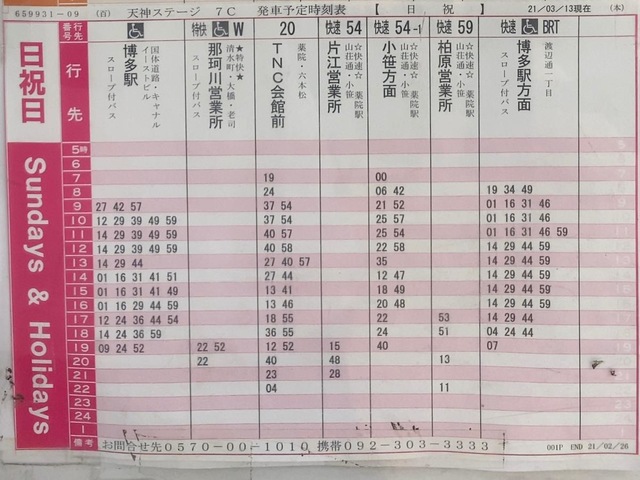 659931-09 (百) 天神ステージ 7C 発車予定時刻表 【 日 祝 】 21/03/13現在 (木)
日祝日
Sundays & Holidays
行先番号 W 特快 20 快速 54 快速 54-1 快速 59 快速 BRT
行先
博多駅
国体道路・キャナル
イーストビル
スロープ付バス
那珂川営業所
★特快★
清水町・大橋・老司
スロープ付バス
TNC会館前
薬院・六本松
片江営業所
☆快速☆ 薬院駅
山荘通・小笹
小笹方面
☆快速☆ 薬院駅
山荘通・小笹
柏原営業所
☆快速☆ 薬院駅
山荘通・小笹
博多駅方面
渡辺通一丁目
スロープ付バス
5時
6
7 19 00
8 24 06 42 19 34 49
9 27 42 57 37 54 21 52 01 16 31 46
10 12 29 39 49 59 37 54 25 57 01 16 31 46
11 14 29 39 49 59 40 57 25 54 01 16 31 46 59
12 12 29 39 49 59 40 58 22 58 14 29 44 59
13 14 29 44 27 40 57 35 14 29 44 59
14 01 16 31 41 51 27 44 12 47 14 29 44 59
15 01 16 31 41 49 13 41 18 49 14 29 44 59
16 01 16 29 44 59 13 46 20 48 14 29 44 59
17 12 24 36 44 54 18 55 22 53 14 29 44 59
18 14 24 36 59 36 55 24 51 04 24 44
19 09 24 52 22 52 12 52 15 40 07
20 22 40 48 13
21 23 28
22 04 11
23
24
1
備考 お問合せ先0570-00-1010 携帯092-303-3333 001P END 21/02/26